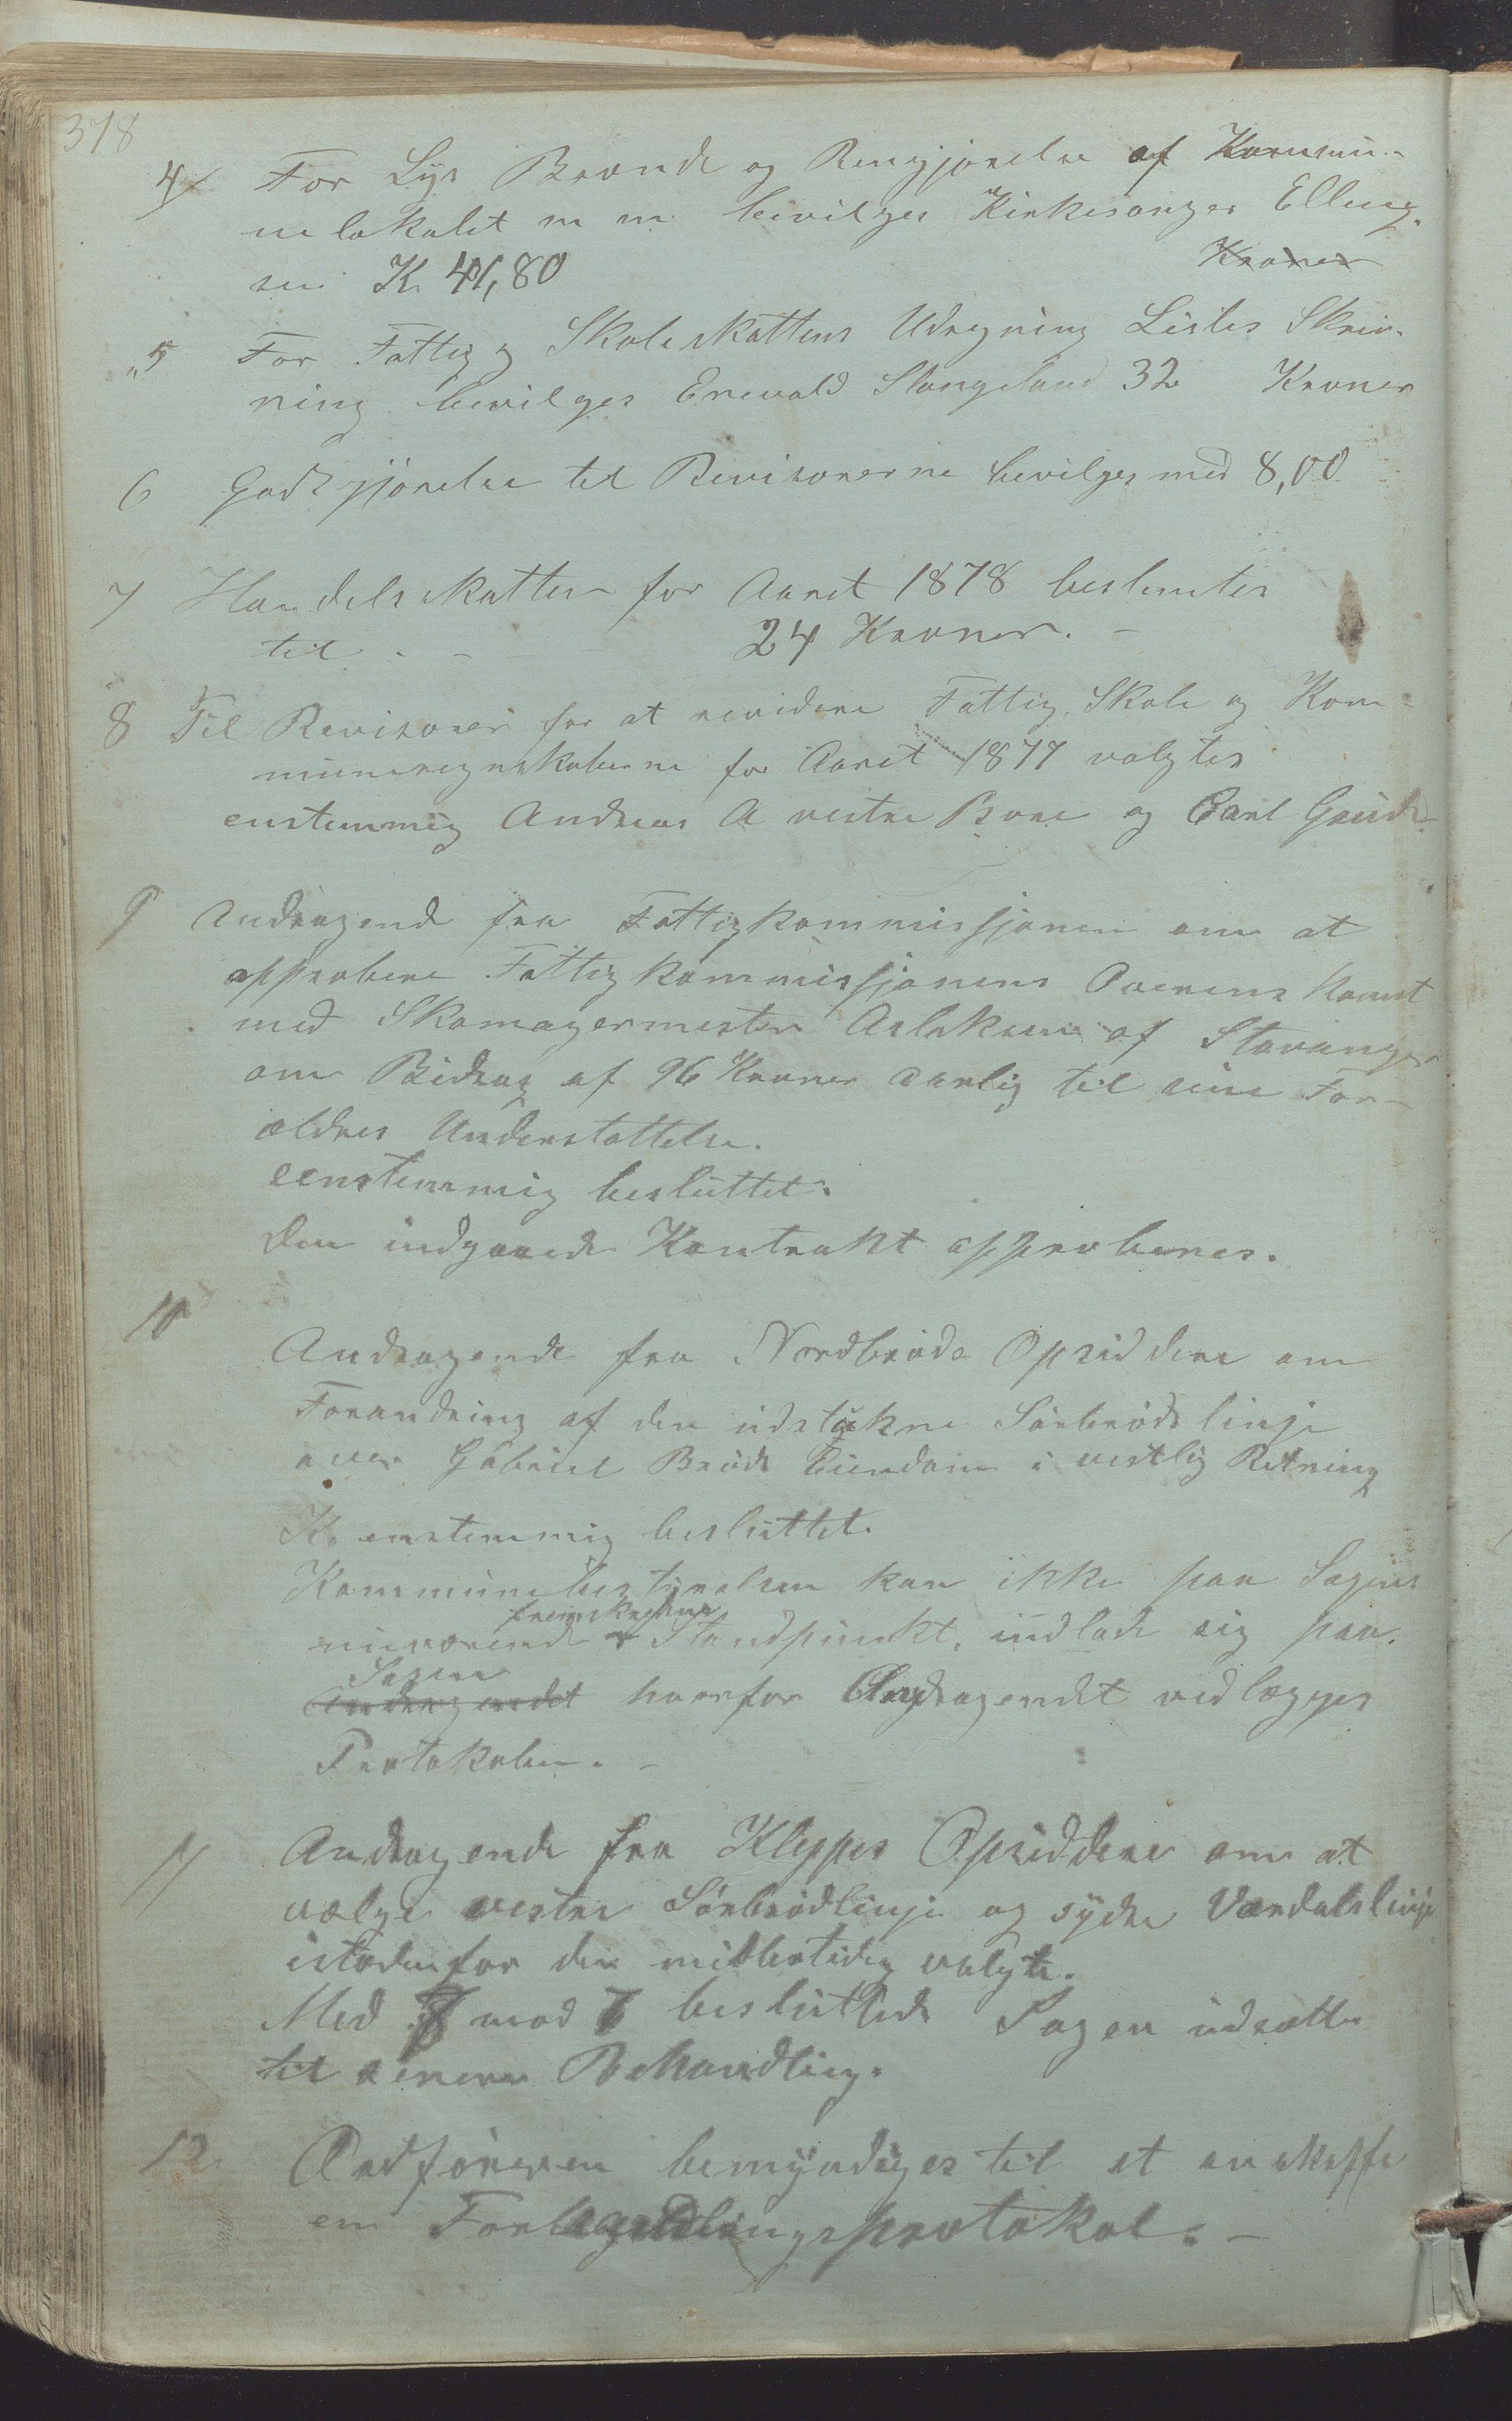 378
4/ For Lys Brænde og Rengjørelse af Kommu-
nelokalet m m bevilges Kirkesanger Elling-
sen K 41,80 Kroner
5 For Fattig og Skoleskattens Udregning Listes Skriv-
ning bevilges Enevald Stangeland 32 Kroner
6 Godtgjörelse til Revisorerne bevilges med 8,00
7 Handelsskatten for Aaret 1878 bestemtes
til - - - 24 Kroner. -
8 Til Revisorer for at revidere Fattig, Skole og Kom-
muneregnskaberne for Aaret 1877 valgtes
enstemmig Andreas A vestre Bore og Carl Grude
9 Andragend fra Fattigkommissjonen om at
approbere Fattigkommissjonens Overenskomst
med Skomagermester Aslaksen af Stavanger
om Bidrag af 96 Kroner Aarlig til sine For-
ældres Understøttelse.
eenstemmig besluttet.
den indgaaede Kontrakt approberes.
10
Andragende fra Nordbröds Opsiddere om
Forandring af den udstukne Sörbrödslinje
over Gabriel Bröds Eiendom i vestlig Retning
K. enstemmig besluttet.
Kommunebestyrelsen kan ikke paa Sagens
nuværende Standpunkt, indlade sig paa
Sagen
Andragendet hvorfor Andragendet vedlægges
Protokolen. -
11 Andragende fra Kleppes Opsiddere om at
vælge vestre Sörbrödlinje og sydre Værdalslinje
istedenfor den midlertidig valgte.
Med 7 mod 7 besluttede Sagen udsætte
til senere Behandling.
12 Ordføreren bemyndiges til at anskaffe
en Forhandlingsprotokol. -